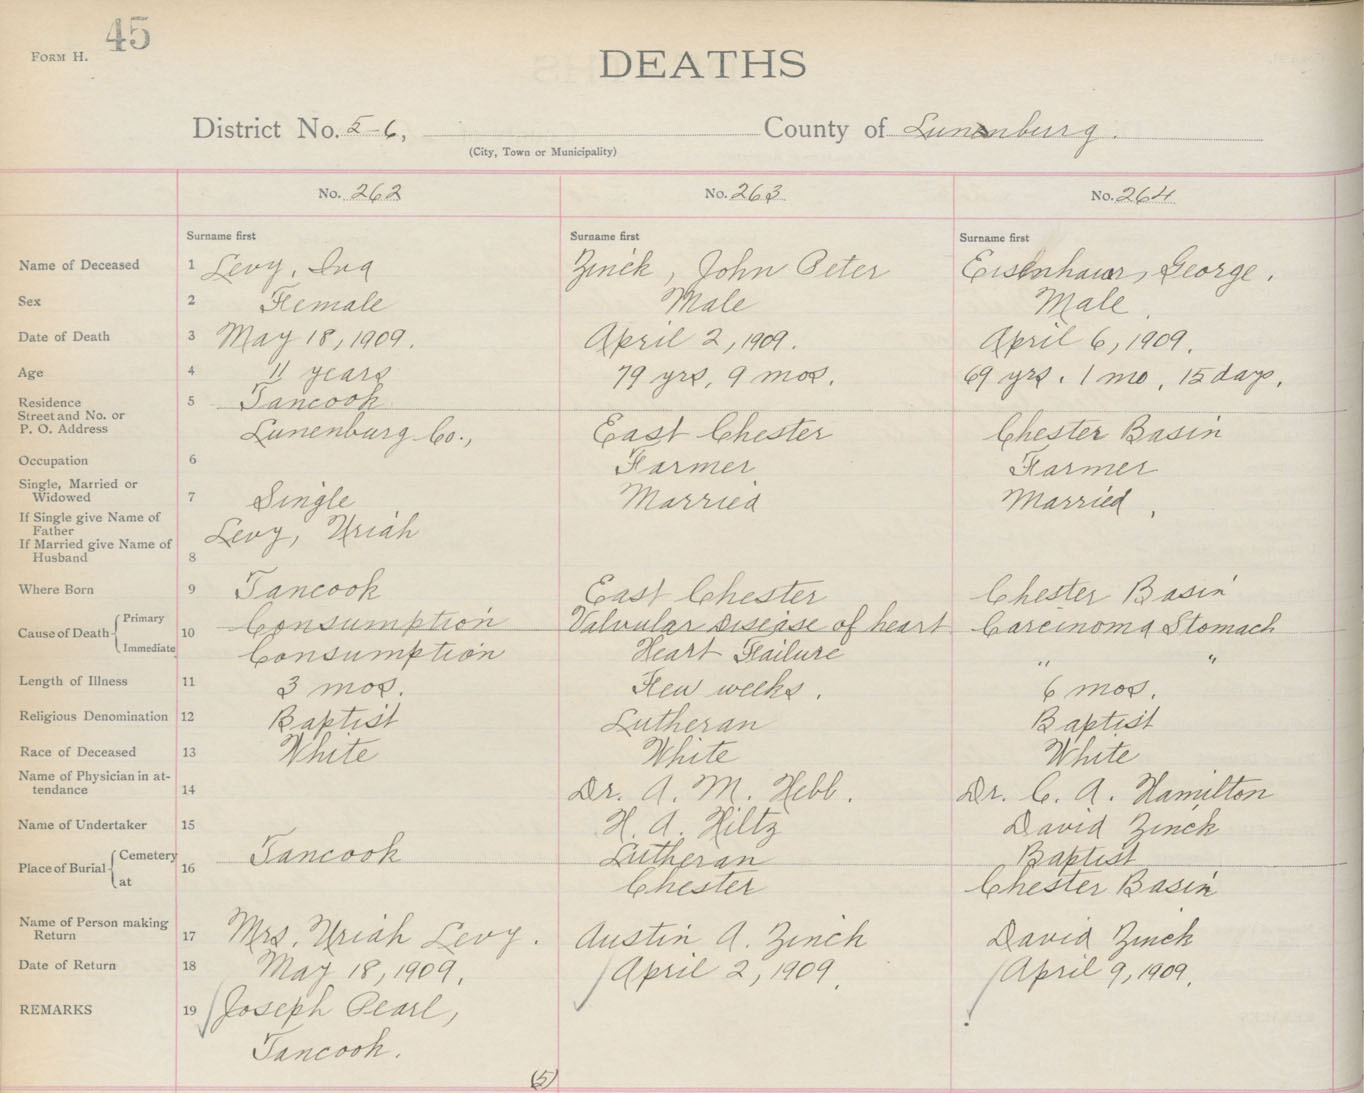 45
FORM H.
DEATHS
District No. 5-6, County of Lunenburg.
(City, Town or Municipality)
No. 262 No. 263 No. 264
Surname first Surname first Surname first
Name of Deceased 1 Levy, Iva Zinck, John Peter Eisenhaur, George.
Sex 2 Female Male Male.
Date of Death 3 May 18, 1909. April 2, 1909. April 6, 1909.
Age 4 11 years 79 yrs, 9 mos. 69 yrs. 1 mo, 15 days.
Residence 5 Tancook
Street and No. or
P. O. Address Lunenburg Co., East Chester Chester Basin
Occupation 6 Farmer Farmer
Single, Married or
Widowed 7 Single Married Married,
If Single give Name of
Father Levy, Uriah
If Married give Name of
Husband 8
Where Born 9 Tancook East Chester Chester Basin
Cause of Death Primary 10 Consumption Valvular Disease of heart Carcinoma Stomach
Immediate Consumption Heart Failure " "
Length of Illness 11 3 mos. Few weeks. 6 mos.
Religious Denomination 12 Baptist Lutheran Baptist
Race of Deceased 13 White White White
Name of Physician in at-
tendance 14 Dr. A. M. Hebb. Dr. C. A. Hamilton
Name of Undertaker 15 H. A. Hiltz David Zinck
Place of Burial Cemetery 16 Tancook Lutheran Baptist
at Chester Chester Basin
Name of Person making
Return 17 Mrs. Uriah Levy. Austin A. Zinck David Zinck
Date of Return 18 May 18, 1909. April 2, 1909. April 9, 1909.
REMARKS 19 Joseph Pearl,
Tancook.
(5)